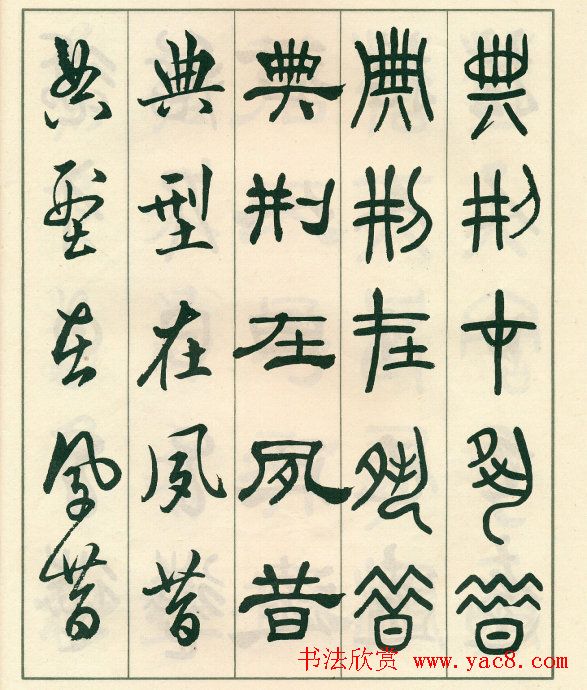 典刑在夙昔
典刑在夙昔
典刑在夙昔
典型在夙昔
典型在夙昔
书法欣赏 www.yac8.com